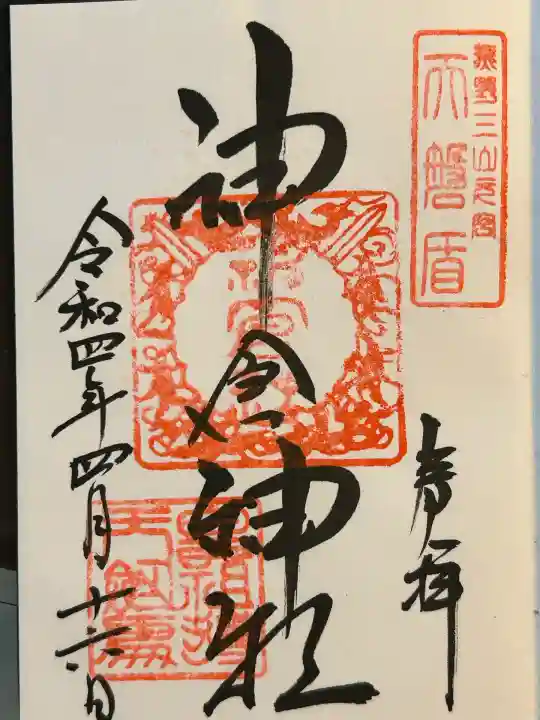 熊野三山元宮
天磐盾
奉拝
神倉神社
令和四年四月十六日